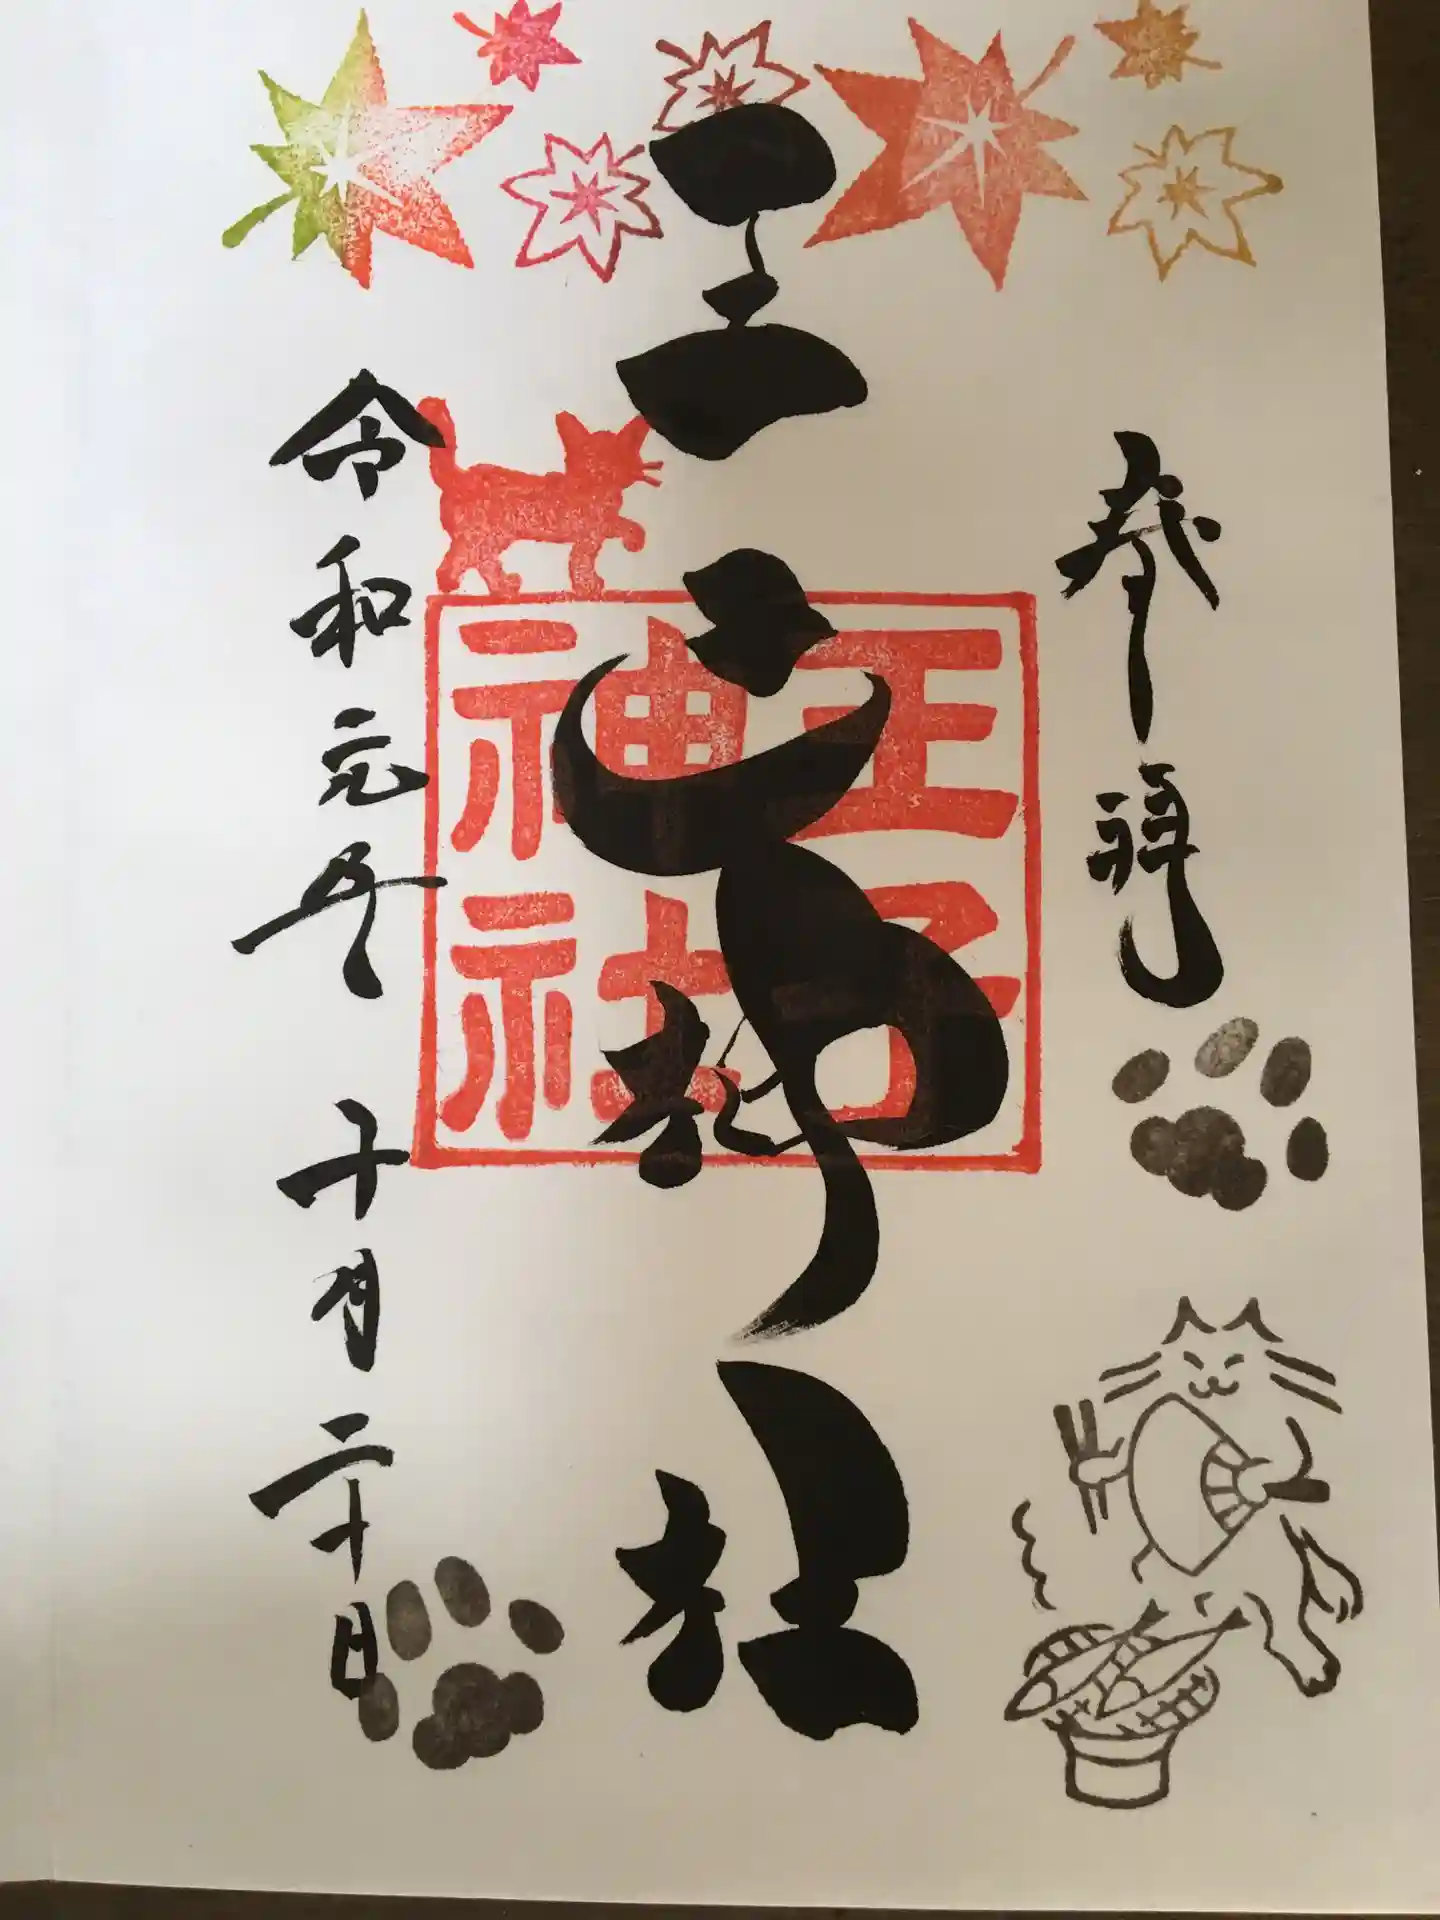 奉拝
王子神社
王子
神社
令和元年 十月二十日